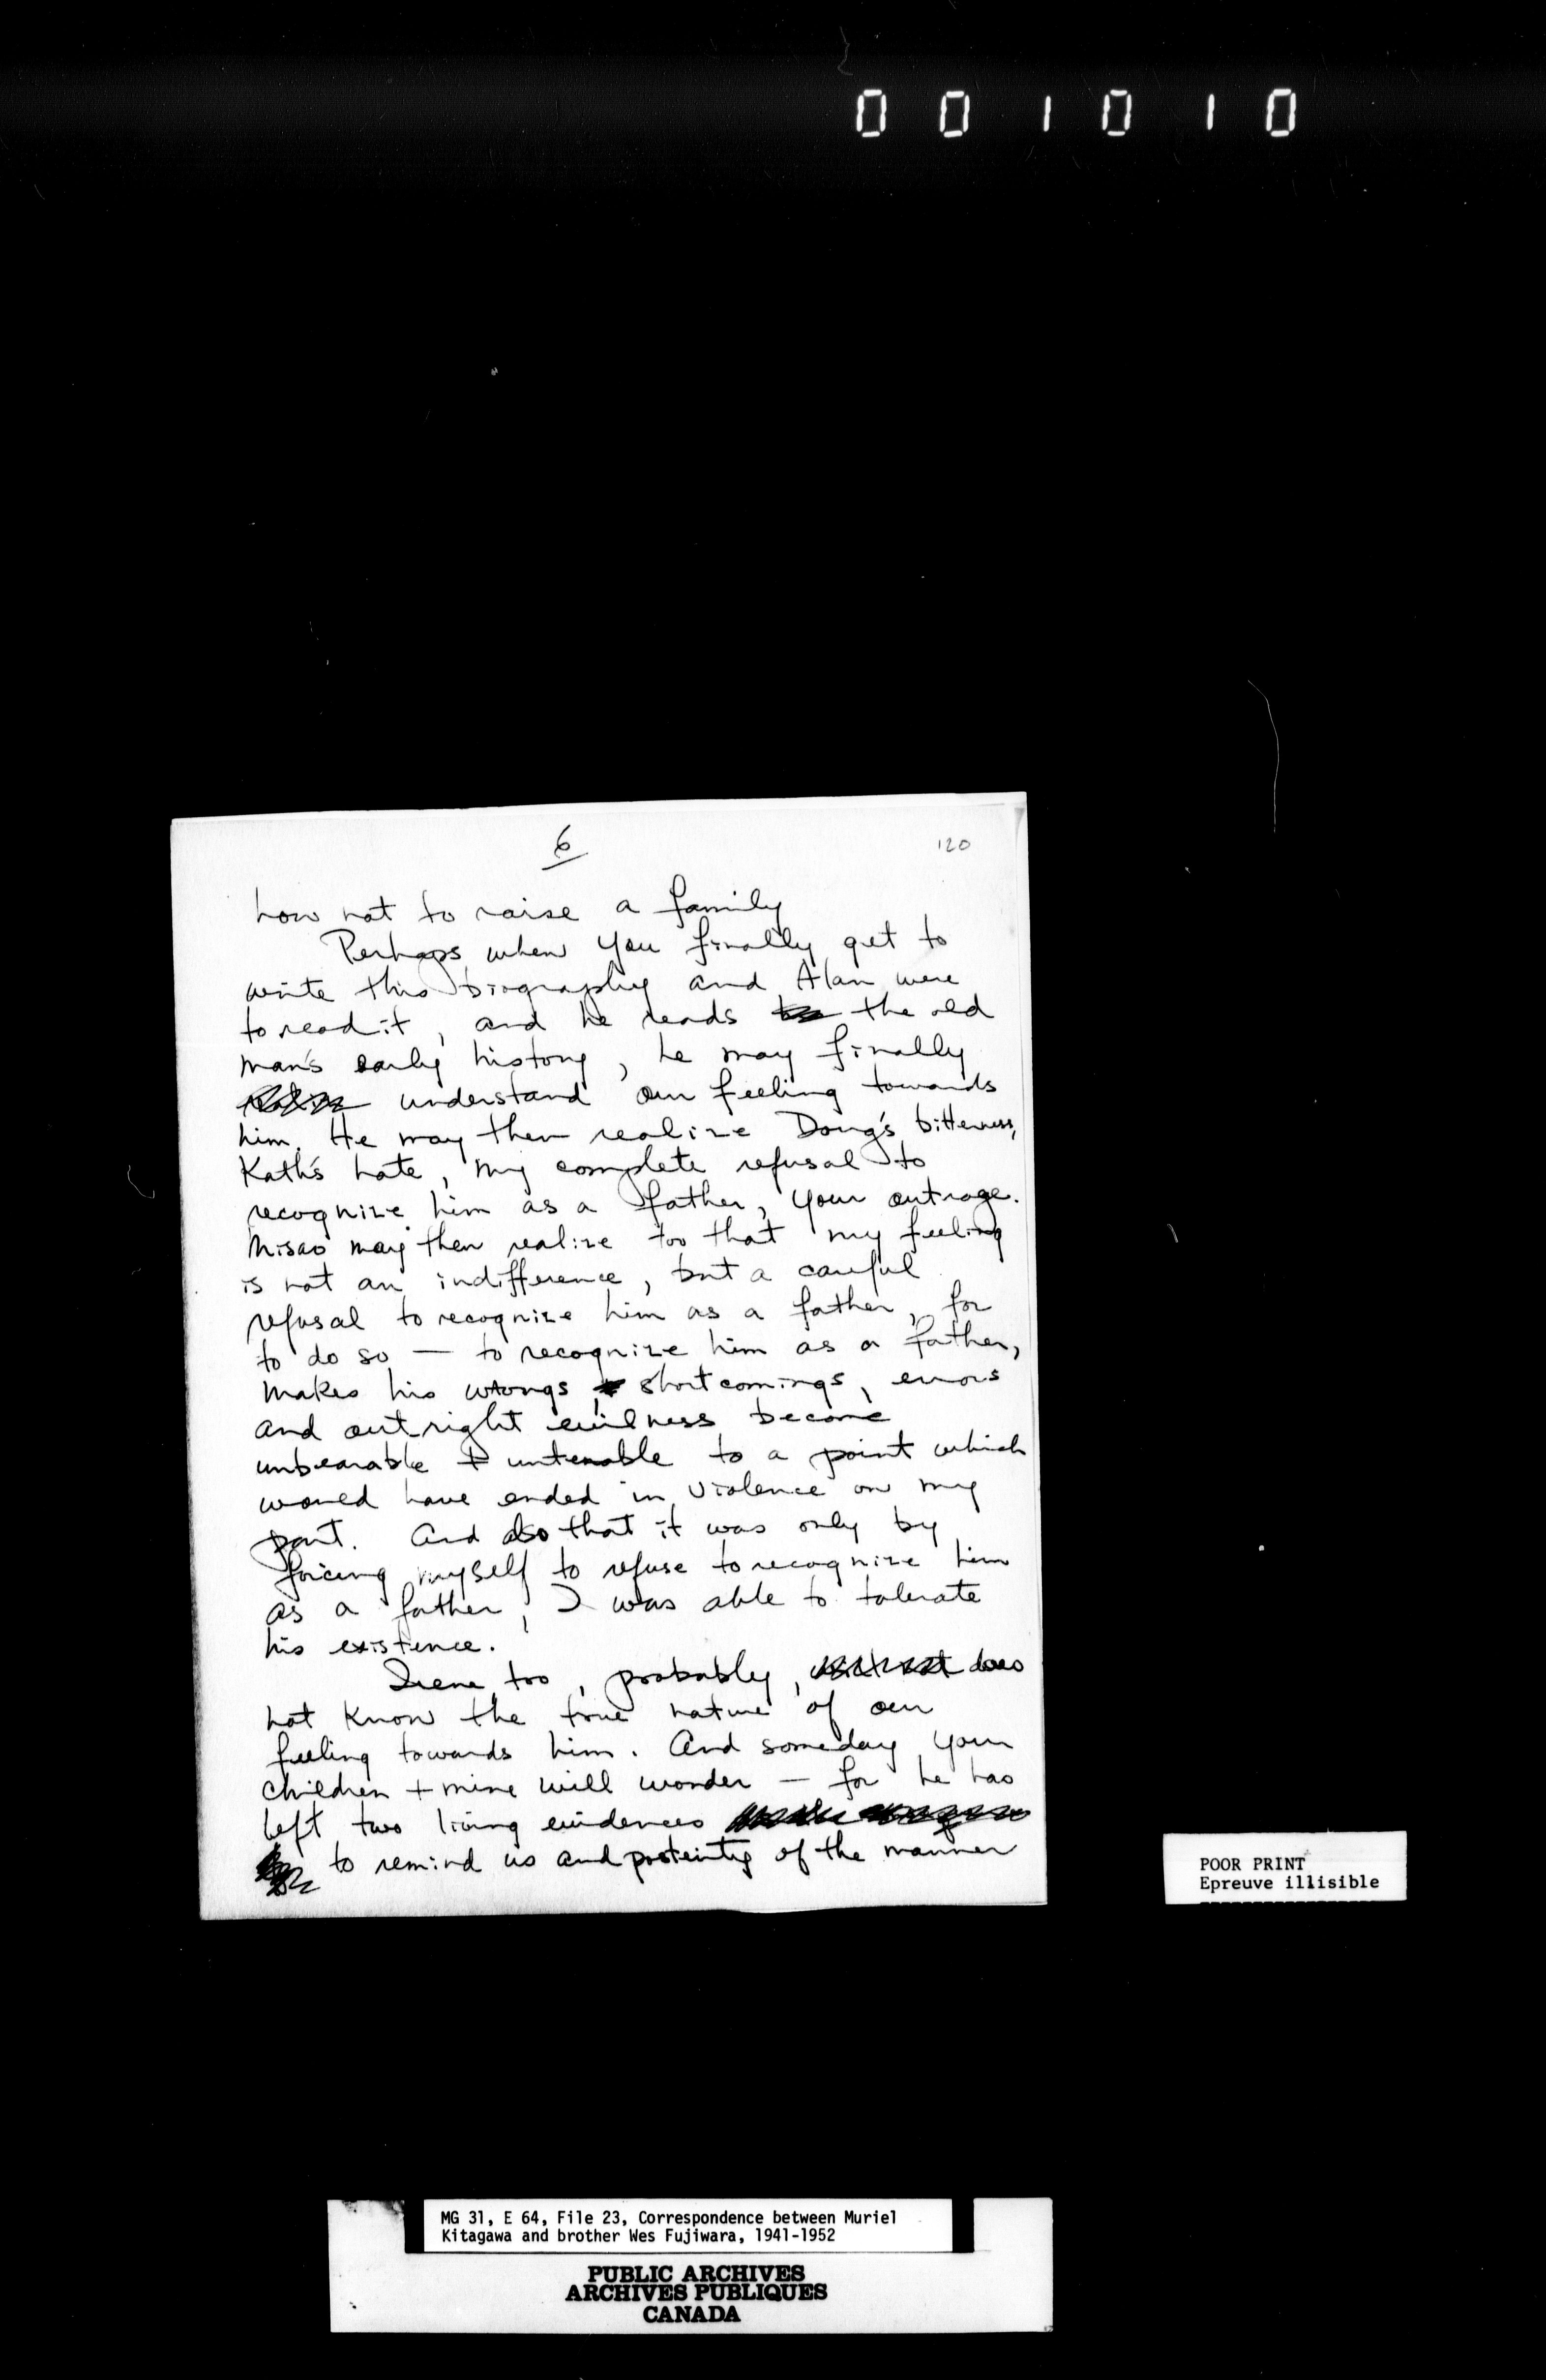 001010
6
120
how not to raise a family
Perhaps when you finally get to
write this biography and Alan were
to read it, and he reads the old
man's early history, he may finally
understand our feeling towards
him. He may then realize Doug's bitterness,
Kath's hate, my complete refusal to
recognize him as a father, your outrage.
Misao may then realize too that my feeling
is not an indifference, but a careful
refusal to recognize him as a father, for
to do so — to recognize him as a father,
makes his wrongs, shortcomings, errors
and outright evilness become
unbearable + untenable to a point which
would have ended in violence on my
part. And also that it was only by
forcing myself to refuse to recognize him
as a father, I was able to tolerate
his existence.
Irene, too, probably, does
not know the true nature of our
feeling towards him. And someday your
children + mine will wonder — for he has
left two living evidences
to remind us and posteinty of the manner
POOR PRINT
Epreuve illisible
MG 31, E 64, File 23, Correspondence between Muriel
Kitagawa and brother Wes Fujiwara, 1941-1952
PUBLIC ARCHIVES
ARCHIVES PUBLIQUES
CANADA